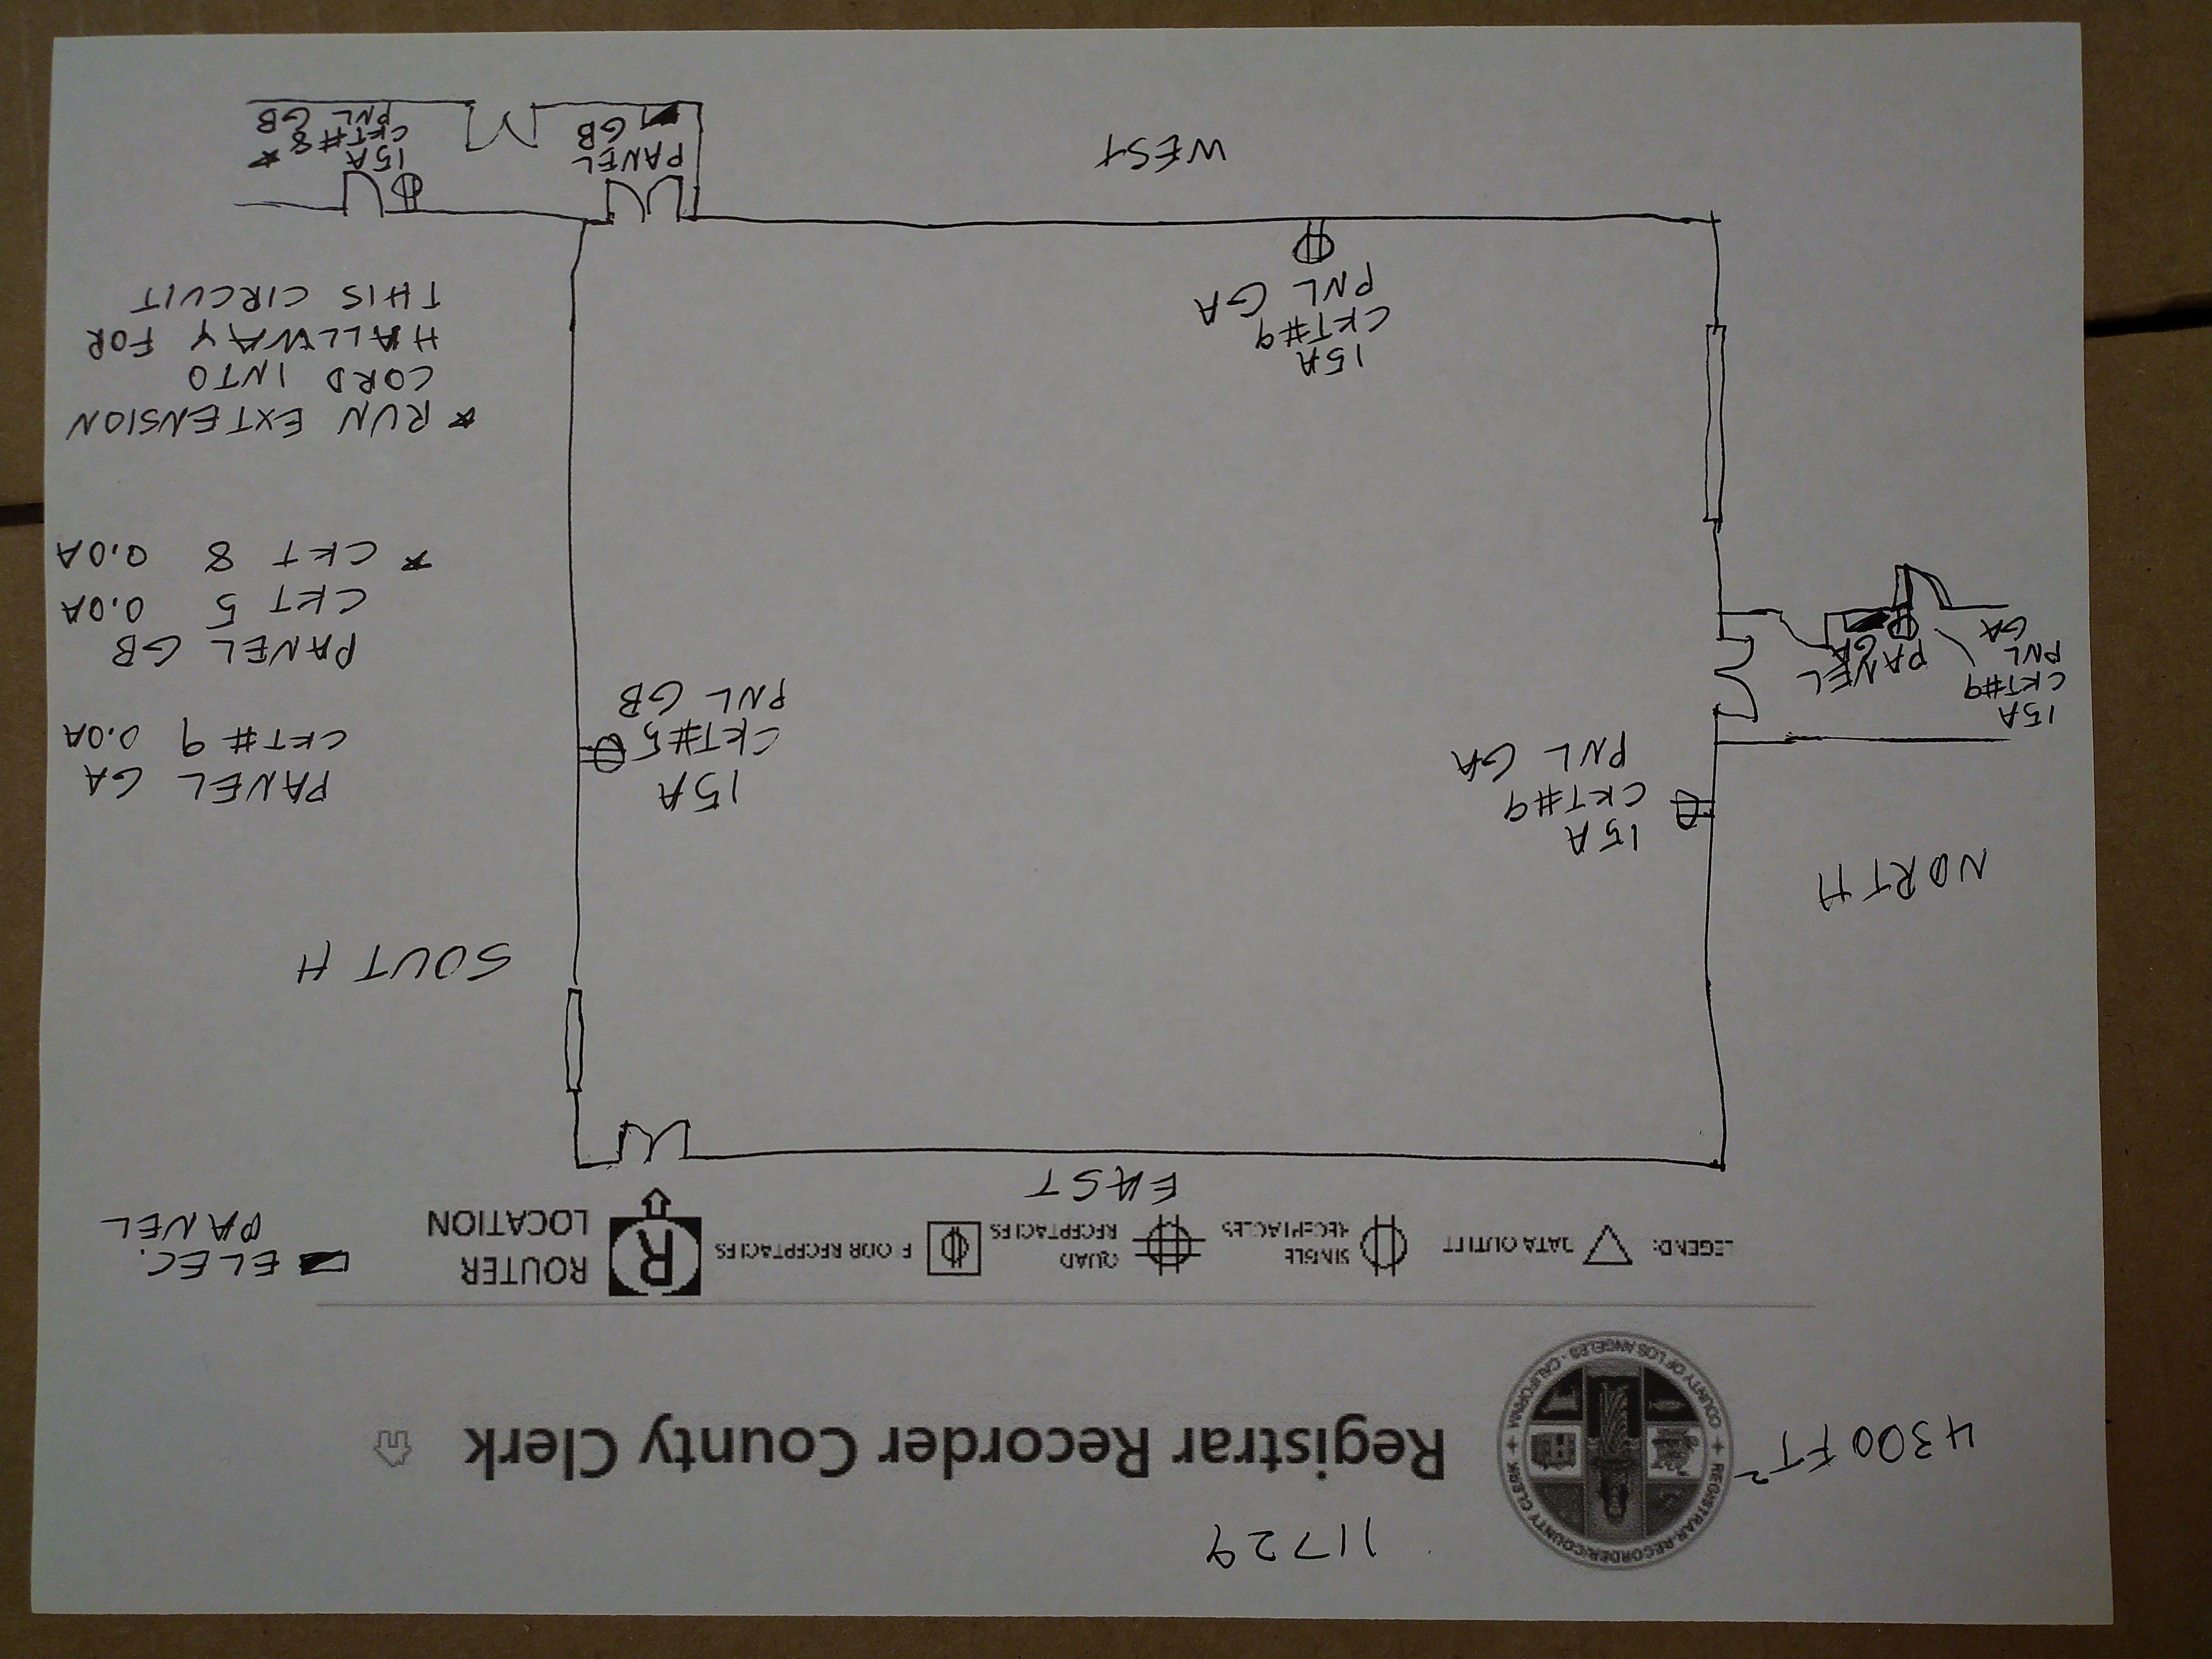 11729
4300 FT²
REGISTRAR-RECORDER/COUNTY CLERK
COUNTY OF LOS ANGELES · CALIFORNIA
Registrar Recorder County Clerk
LEGEND:
DATA OUTLET
SINGLE
RECEPTACLES
QUAD
RECEPTACLES
FLOOR RECEPTACLES
R
ROUTER
LOCATION
ELEC.
PANEL
EAST
NORTH
SOUTH
15A
CKT#9
PNL GA
15A
CKT#5
PNL GB
PANEL GA
CKT#9 0.0A
PANEL GB
CKT 5 0.0A
* CKT 8 0.0A
15A
CKT#9
PNL
GA
PANEL
GA
* RUN EXTENSION
CORD INTO
HALLWAY FOR
THIS CIRCUIT
15A
CKT#9
PNL GA
WEST
PANEL
GB
15A *
CKT#8
PNL GB